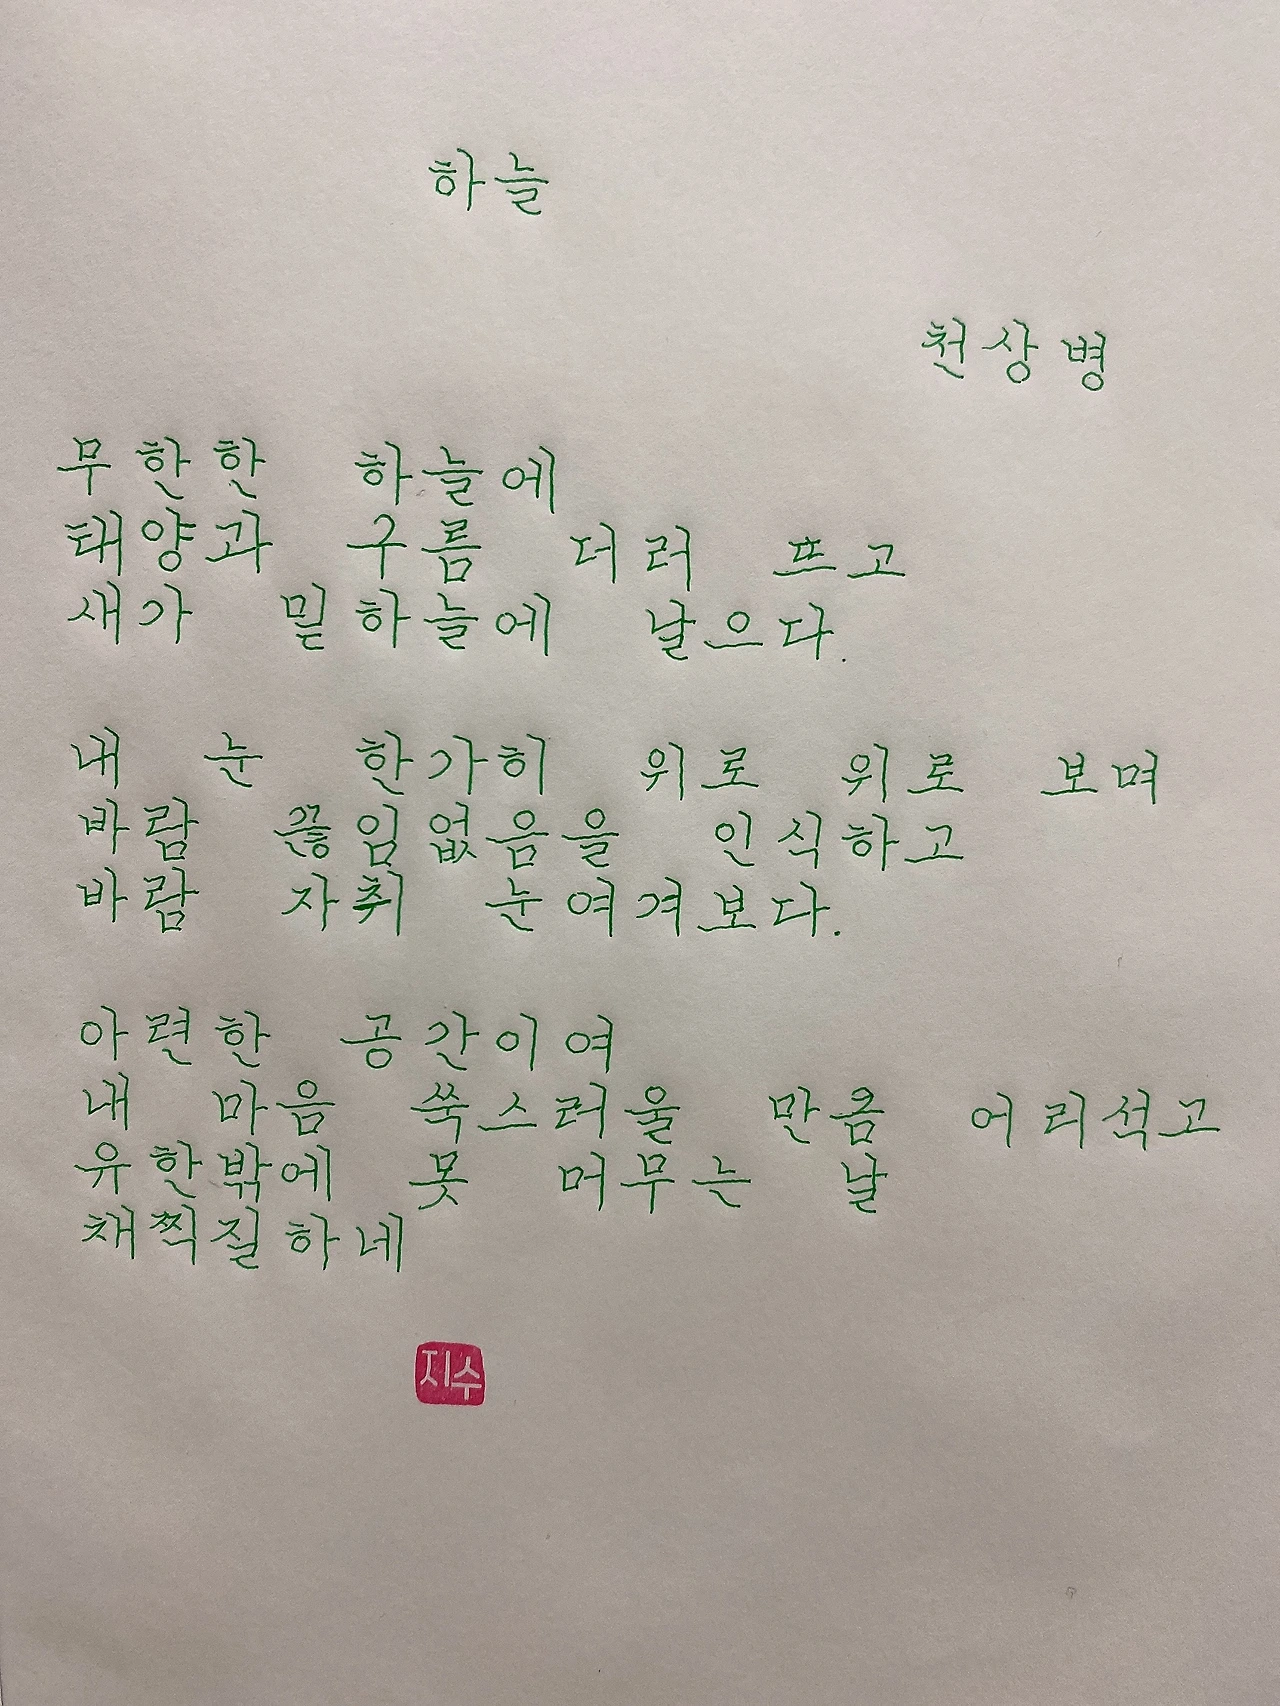 하늘
천상병
무한한 하늘에
태양과 구름 더러 뜨고
새가 밑하늘에 날으다.
내 눈 한가히 위로 위로 보며
바람 끊임없음을 인식하고
바람 자취 눈여겨보다.
아련한 공간이여
내 마음 쑥스러울 만큼 어리석고
유한밖에 못 머무는 날
채찍질하네
지수